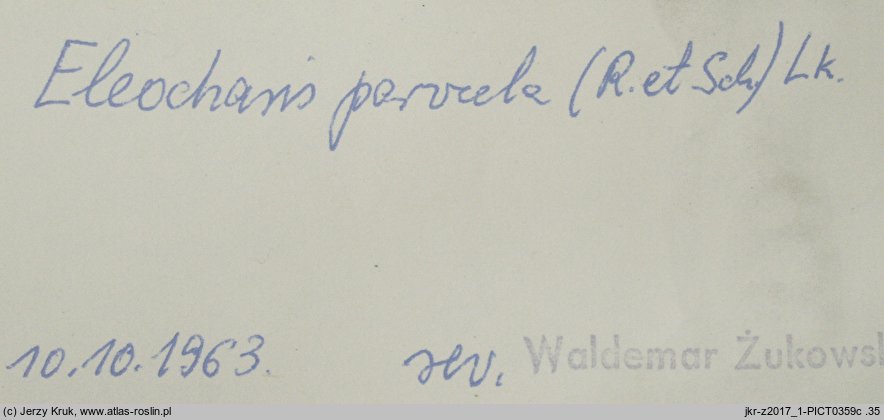 Eleocharis parvula (R. et Sch.) Lk.
10.10.1963. rev. Waldemar Żukowsk
(c) Jerzy Kruk, www.atlas-roslin.pl jkr-z2017_1-PICT0359c .35